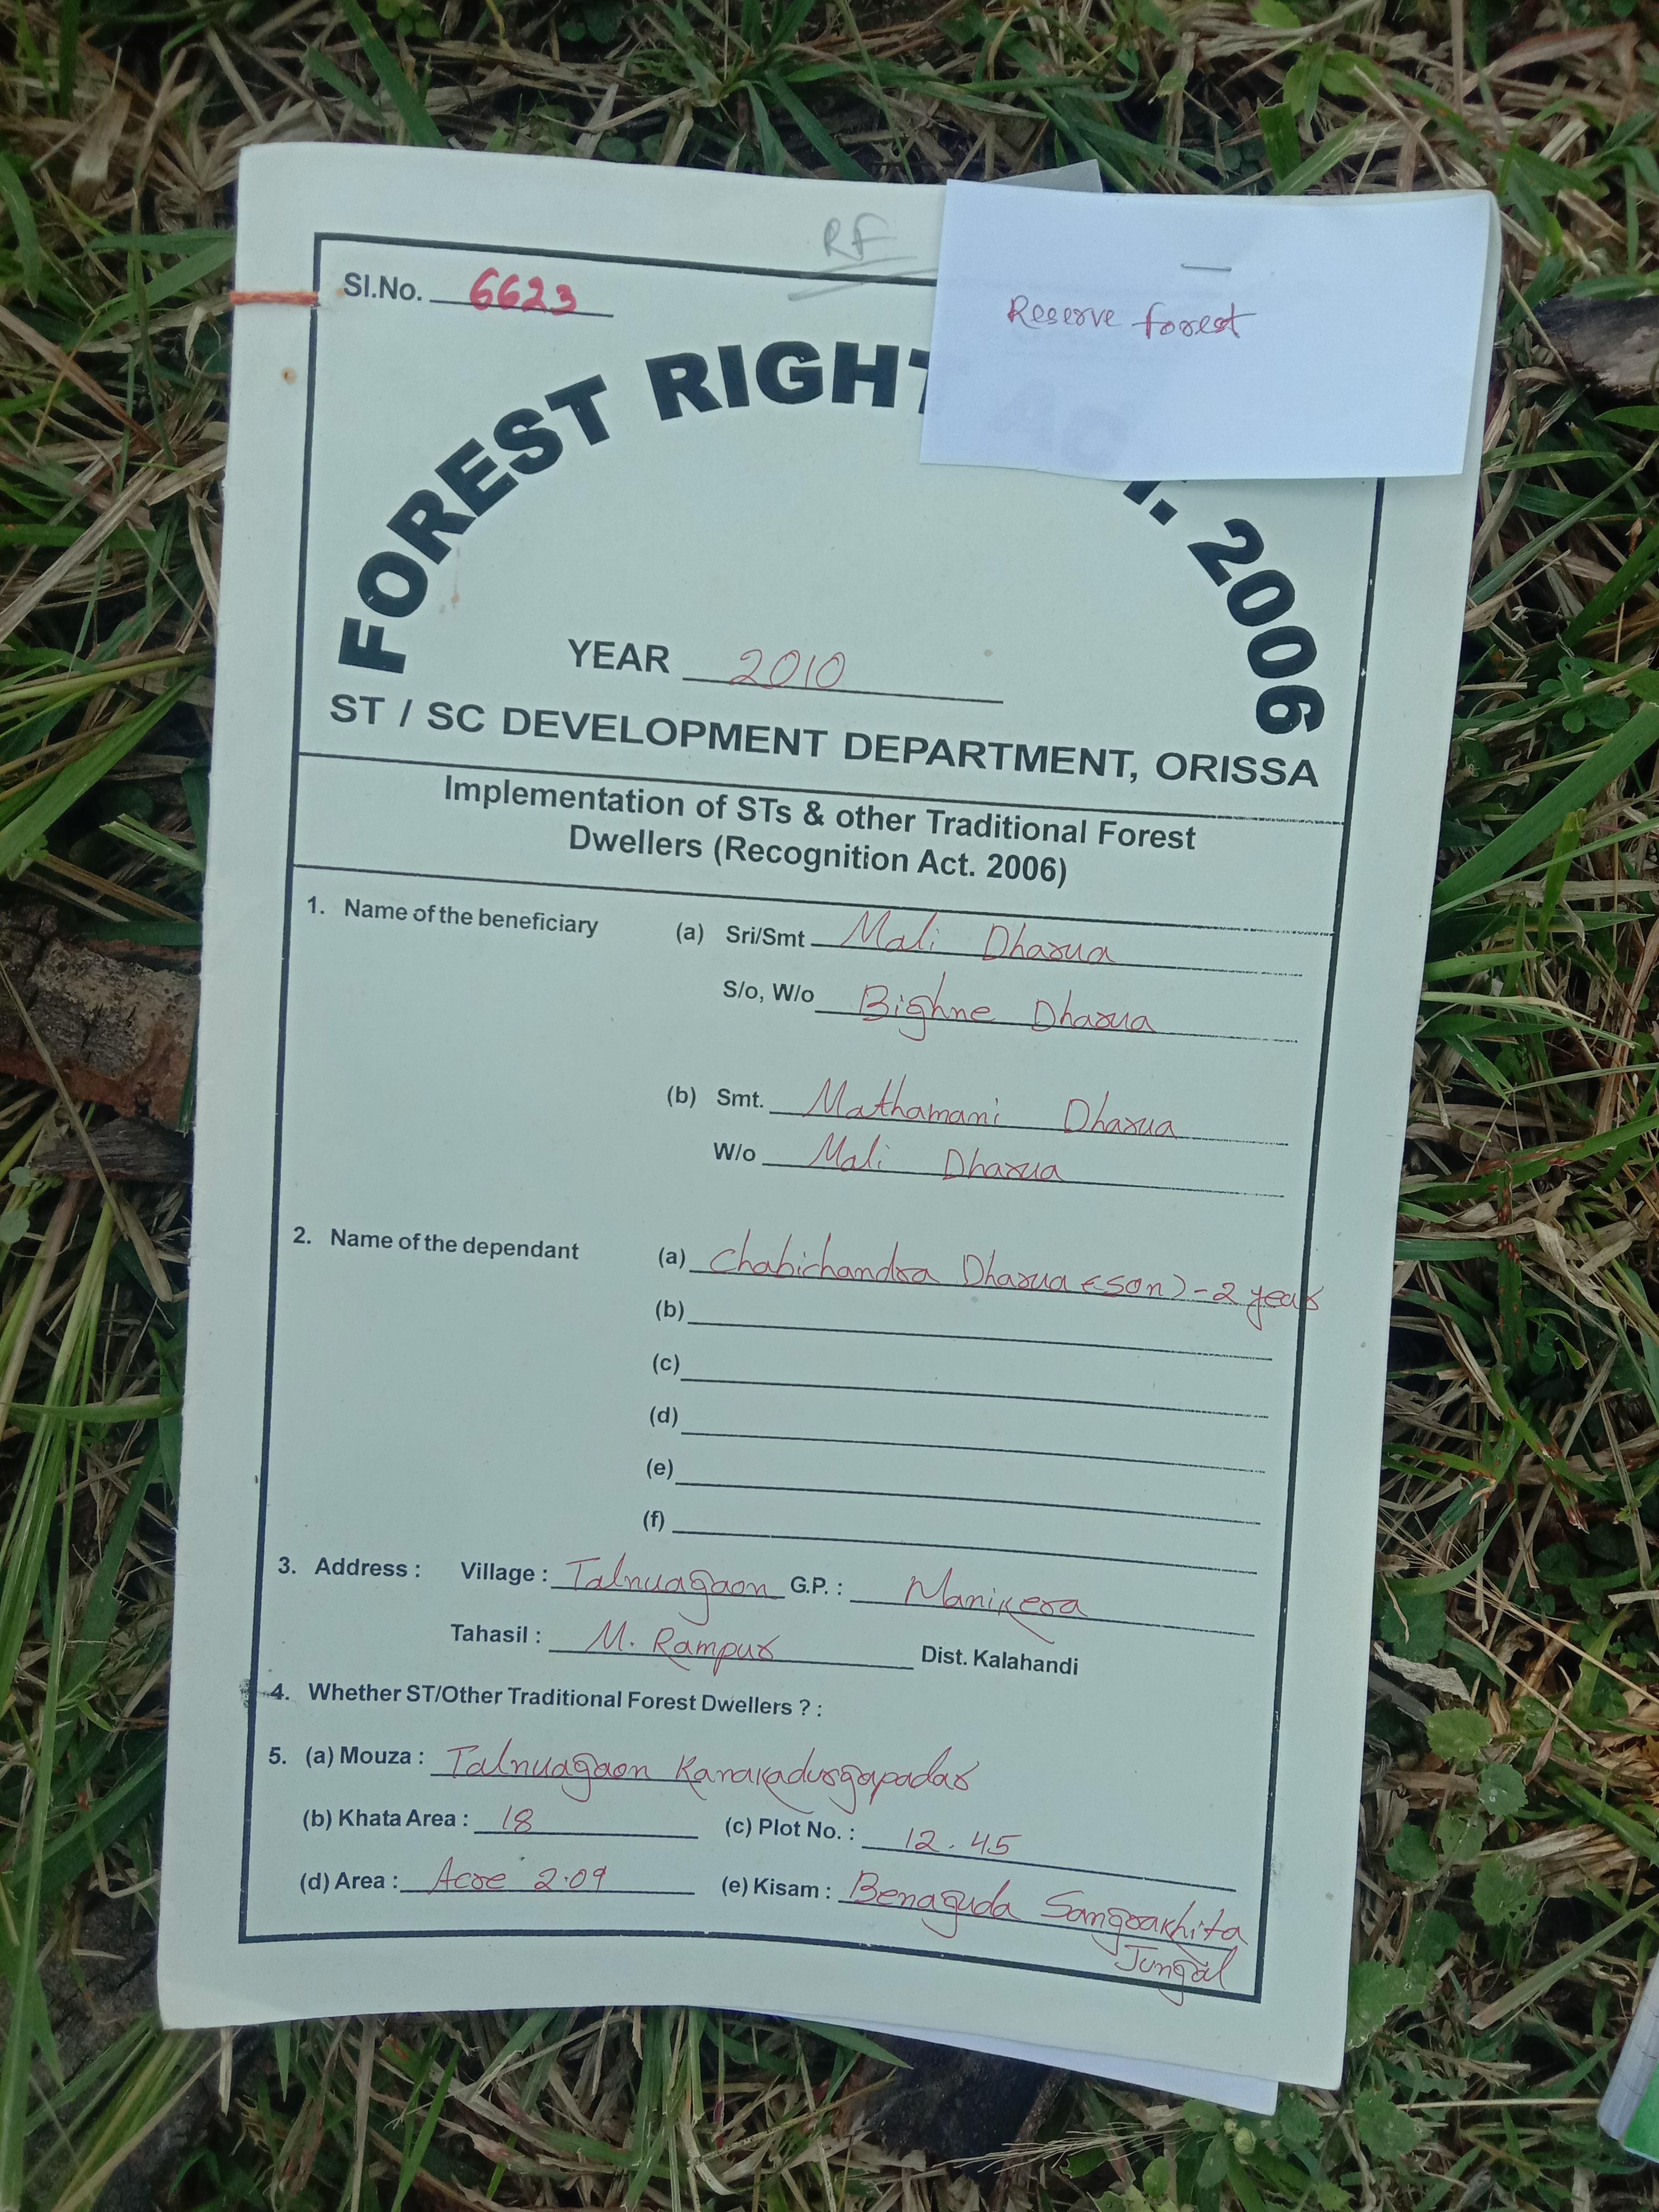 RF
Reserve forest
Sl.No. 6623
FOREST RIGHT AC. 2006
YEAR 2010
ST / SC DEVELOPMENT DEPARTMENT, ORISSA
Implementation of STs & other Traditional Forest
Dwellers (Recognition Act. 2006)
1. Name of the beneficiary (a) Sri/Smt Mali Dharua
S/o, W/o Bighne Dharua
(b) Smt. Mathamani Dharua
W/o Mali Dharua
2. Name of the dependant (a) Chabichandra Dharua (son) - 2 year
(b)
(c)
(d)
(e)
(f)
3. Address : Village : Talnuagaon G.P. : Manikera
Tahasil : M. Rampur Dist. Kalahandi
4. Whether ST/Other Traditional Forest Dwellers ? :
5. (a) Mouza : Talnuagaon Kanakadurgapadar
(b) Khata Area : 18 (c) Plot No. : 12.45
(d) Area : Acre 2.09 (e) Kisam : Benaguda Sangrakhita
Jungal